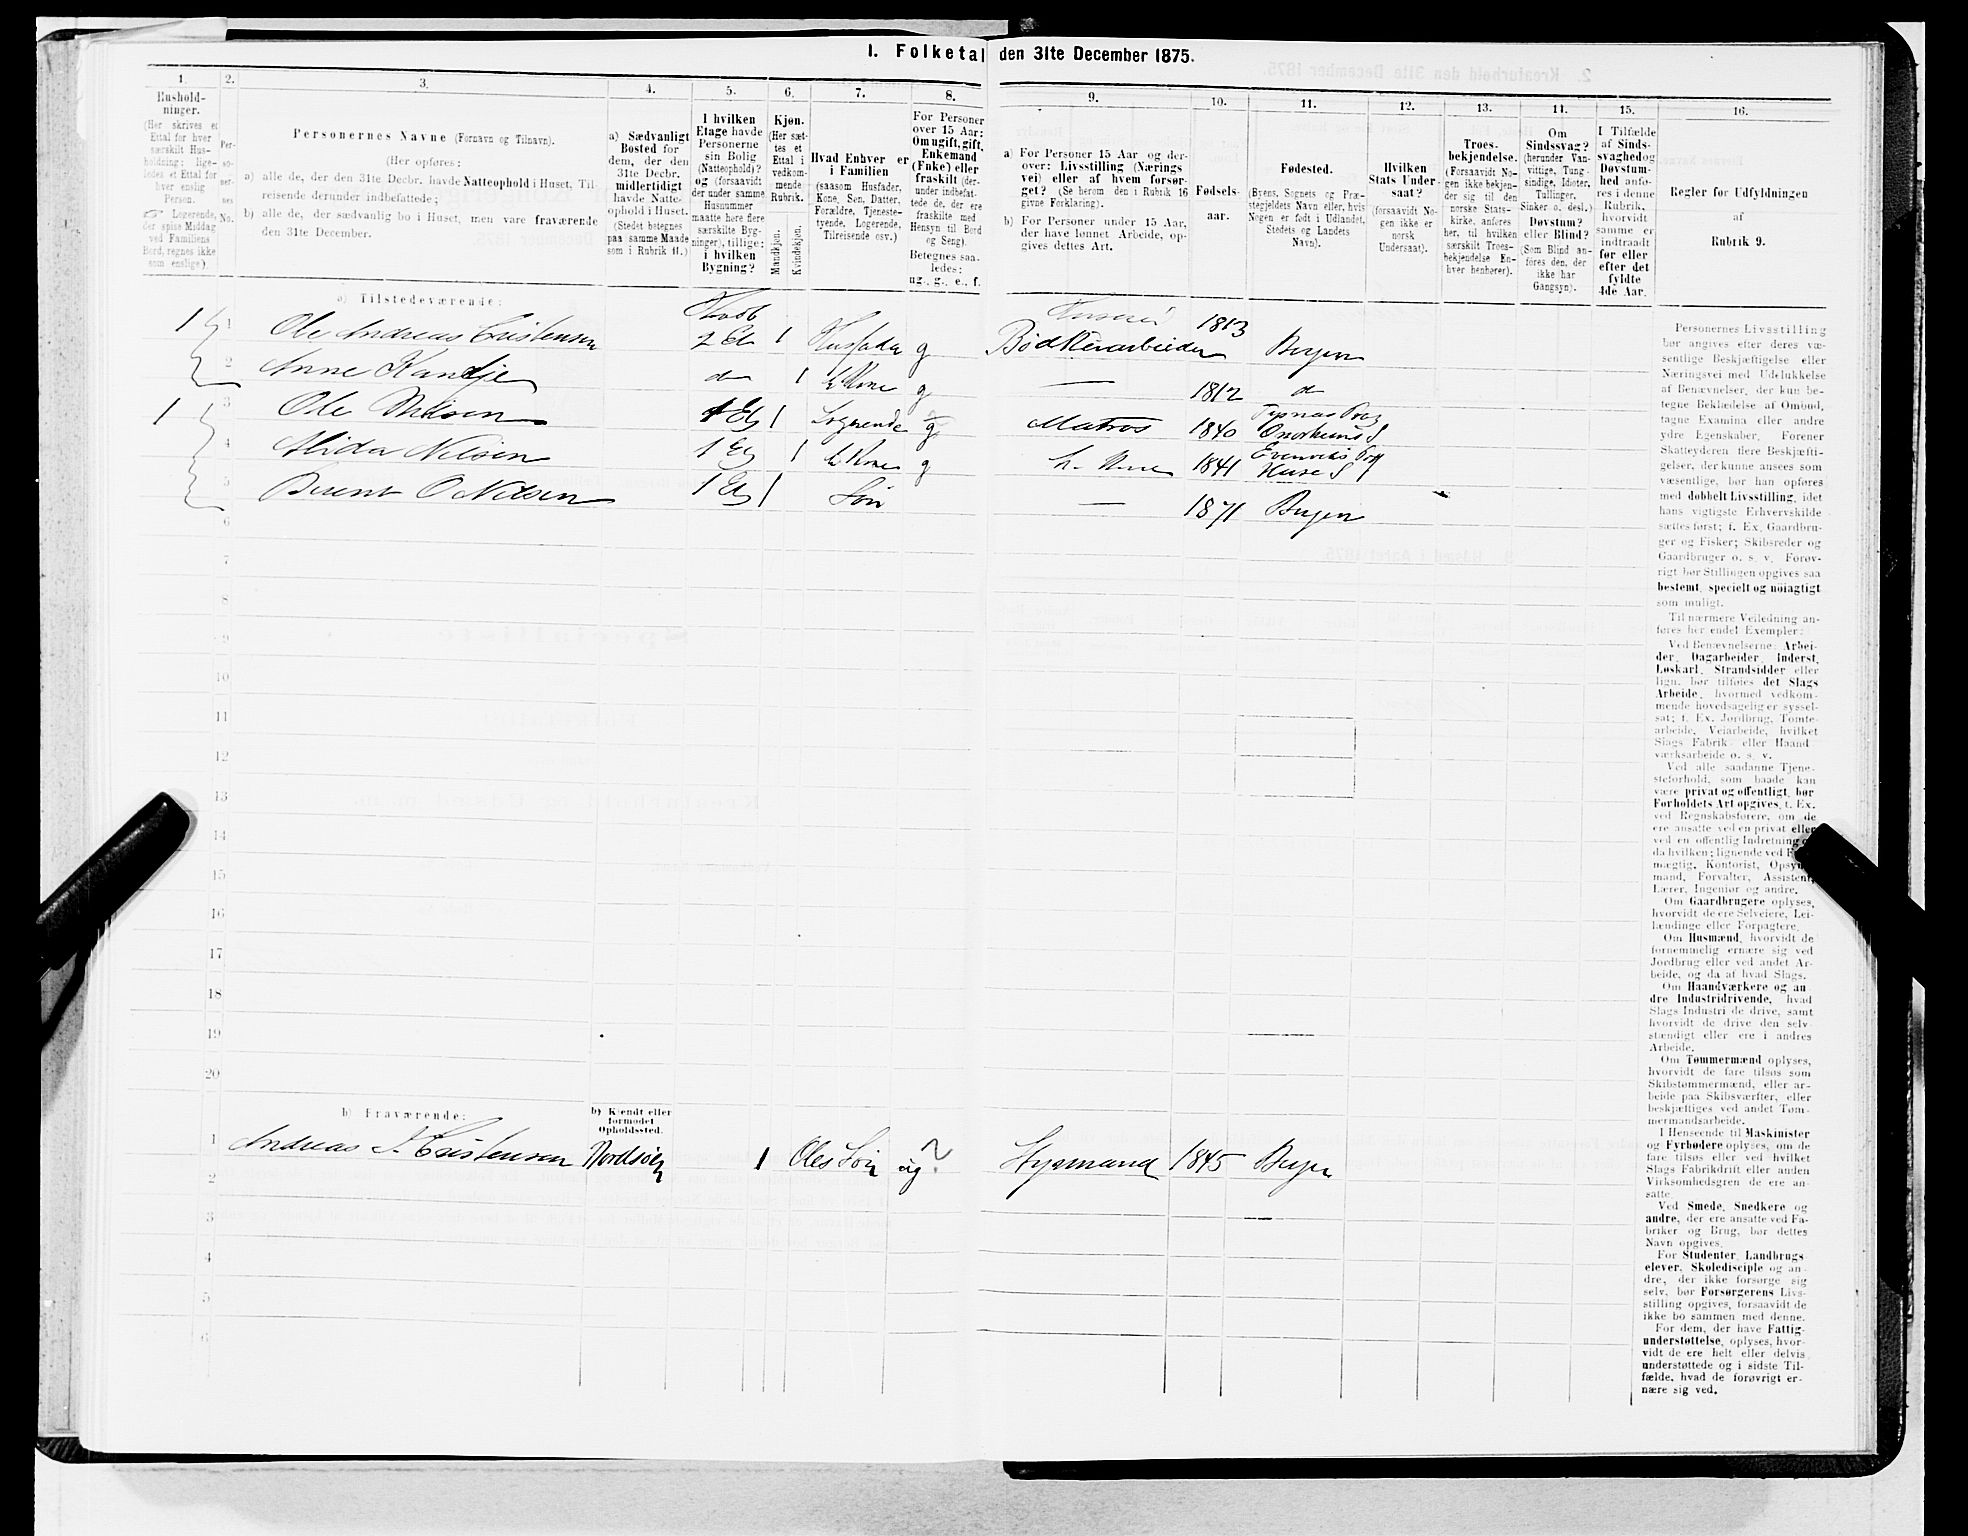 1. Folketal den 31te December 1875.
1.
Hushold-
ninger.
(Her skrives et
Ettal for hver
særskilt Hus-
holdning; lige-
ledes et Ettal for
hver enslig
Person.
☞ Logerende,
der spise Middag
ved Familiens
Bord, regnes ikke
som enslige).
2.
Per-
so-
ner-
nes
No.
3.
Personernes Navne (Fornavn og Tilnavn).
(Her opføres:
a) alle de, der den 31te Decbr. havde Natteophold i Huset, Til-
reisende derunder indbefattede;
b) alle de, der sædvanlig bo i Huset, men vare fraværende
den 31te December.
4.
a) Sædvanligt
Bosted for
dem, der den
31te Decbr.
midlertidigt
havde Natte-
ophold i Huset.
(Stedet betegnes
paa samme Maade
som i Rubrik 11.)
5.
I hvilken
Etage havde
Personerne
sin Bolig
(Natteophold)?
og (forsaavidt
der under samme
Husnummer
maatte høre flere
særskilte Byg-
ninger), tillige:
i hvilken
Bygning?
6.
Kjøn.
(Her sæt-
tes et
Ettal i
vedkom-
mende
Rubrik.
Mandkjøn.
Kvindekjøn.
7.
Hvad Enhver er
i Familien
(saasom Husfader,
Kone, Søn, Datter,
Forældre, Tjeneste-
tyende, Logerende,
Tilreisende osv.)
8.
For Personer
over 15 Aar:
Om ugift, gift,
Enkemand
(Enke) eller
fraskilt (der-
under indbefat-
tede de, der ere
fraskilte med
Hensyn til Bord
og Seng).
Betegnes saa-
ledes:
ug., g., e., f.
9.
a) For Personer 15 Aar og der-
over: Livsstilling (Nærings
vei) eller af hvem forsør-
get? (Se herom den i Rubrik 16
givne Forklaring).
b) For Personer under 15 Aar,
der have lønnet Arbeide, op-
gives dettes Art.
10.
Fødsels-
aar.
11.
Fødested.
(Byens, Sognets og Præ-
stegjeldets Navn eller, hvis
Nogen er født i Udlandet,
Stedets og Landets
Navn).
12.
Hvilken
Stats Under-
saat?
(forsaavidt No-
gen ikke er
norsk
Undersaat).
13.
Troes-
bekjendelse.
(Forsaavidt No-
gen ikke bekjen-
der sig til den
norske Stats-
kirke, anføres
her, til hvilken
særskilt Troes-
bekjendelse En-
hver henhører).
14.
Om
Sindssvag?
(herunder Van-
vittige, Tung-
sindige, Idioter,
Tullinger,
Sinker o. desl.)
Døvstum?
eller Blind?
(Som Blind an-
føres den, der
ikke har
Gangsyn).
15.
I Tilfælde
af Sinds-
svaghed og
Døvstum-
hed anfø-
res i denne
Rubrik,
hvorvidt
samme er
indtraadt
før eller
efter det
fyldte
4de Aar.
16.
Regler for Udfyldningen
af
Rubrik 9.
a) Tilstedeværende:
1 1 Ole Andreas Cristensen 2 Etg 1 Husfader g Bødkerarbeider 1813 Bergen
2 Anne Kandje do 1 h Kone g — 1812 do
1 3 Ole Nilsen 1 Etg 1 Logerende g Matros 1840
4 Alida Nilsen 1 Etg 1 h Kone g 1841
5 Berent O Nilsen 1 Etg 1 Søn — 1871 Bergen
6
7
8
9
10
11
12
13
14
15
16
17
18
19
20
b) Fraværende:
b) Kjendt eller
formodet
Opholdssted.
1 Andreas Cristensen Nordsøen 1 Oles Søn ug? Hyremand 1845 Bergen
2
3
4
5
6
Personernes Livsstilling
bør angives efter deres væ-
sentlige Beskjæftigelse eller
Næringsvei med Udelukkelse
af Benævnelser, der kun be-
tegne Beklædelse af Ombud,
tagne Examina eller andre
ydre Egenskaber. Forener
Skatteyderen flere Beskjæfti-
gelser, der kunne ansees som
væsentlige, bør han opføres
med dobbelt Livsstilling, idet
hans vigtigste Erhvervskilde
sættes først; f. Ex. Gaardbru-
ger og Fisker; Skibsreder og
Gaardbruger o. s. v. Forøv-
rigt bør Stillingen opgives saa
bestemt, specielt og nøiagtigt
som muligt.
Til nærmere Veiledning an-
føres her endel Exempler:
Ved Benævnelserne: Arbei-
der, Dagarbeider, Inderst,
Løskarl, Strandsidder eller
lign. bør tilføies det Slags
Arbeide, hvormed vedkom-
mende hovedsagelig er syssel-
sat; f. Ex. Jordbrug, Tomte-
arbeide, Veiarbeide, hvilket
Slags Fabrik- eller Haand-
værksarbeide o. s. v.
Ved alle saadanne Tjene-
steforhold, som baade kan
være privat og offentligt, bør
Forholdets Art opgives, f. Ex.
ved Regnskabsførere, om de
ere ansatte ved en privat eller
ved en offentlig Indretning
da hvilken; lignende ved
mægtig, Kontorist,
mand, Forvalter, Assistent,
Lærer, Ingeniør og andre.
Om Gaardbrugere oplyses,
hvorvidt de ere Selveiere, Lei-
lændinge eller Forpagtere.
Om Husmænd, hvorvidt de
fornemmelig ernære sig ved
Jordbrug eller ved andet Ar-
beide, og da af hvad Slags.
Om Haandværkere og an-
dre Industridrivende, hvad
Slags Industri de drive, samt
hvorvidt de drive den selv-
stændigt eller ere i andres
Arbeide.
Om Tømmermænd oplyses,
hvorvidt de fare tilsøs som
Skibstømmermænd, eller ar-
beide paa Skibsværfter, eller
beskjæftiges ved andet Tøm-
mermandsarbeide.
I Henseende til Maskinister
og Fyrbødere oplyses, om de
fare tilsøs eller ved hvilket
Slags Fabrikdrift eller anden
Virksomhedsgren de ere an-
satte.
Ved Smede, Snedkere og
andre, der ere ansatte ved Fa-
briker og Brug, bør dettes
Navn opgives.
For Studenter, Landbrugs-
elever, Skoledisciple og an-
dre, der ikke forsørge sig
selv, bør Forsørgerens Livs-
stilling opgives, forsaavidt de
ikke bo sammen med denne.
For dem, der have Fattig-
understøttelse, oplyses, hvor-
vidt de ere helt eller delvis
understøttede og i sidste Til-
fælde, hvad de forøvrigt er-
nære sig ved.